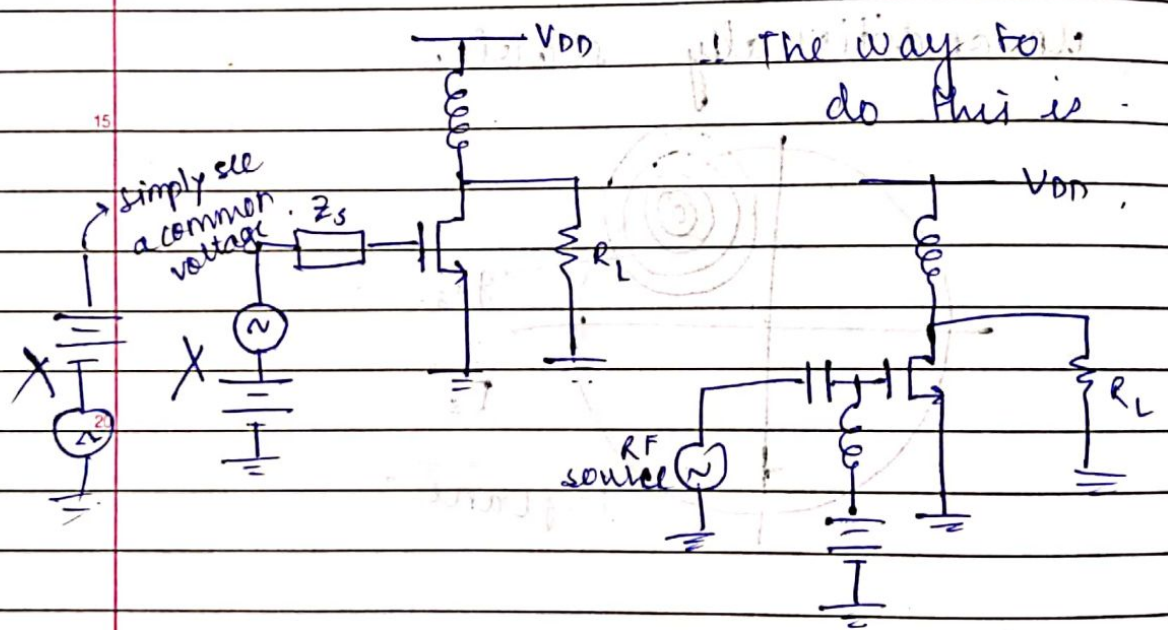 VDD
!! The way to
do this is
15
simply see
a common
voltage
Zs
RL
VDD
X
X
20
RF
source
RL